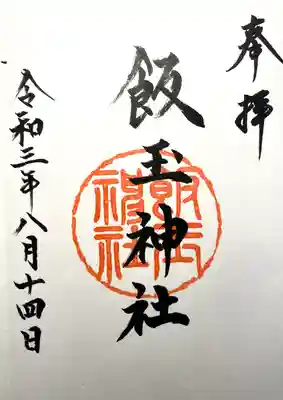 奉拝
飯玉神社
飯玉神社
令和三年八月十四日